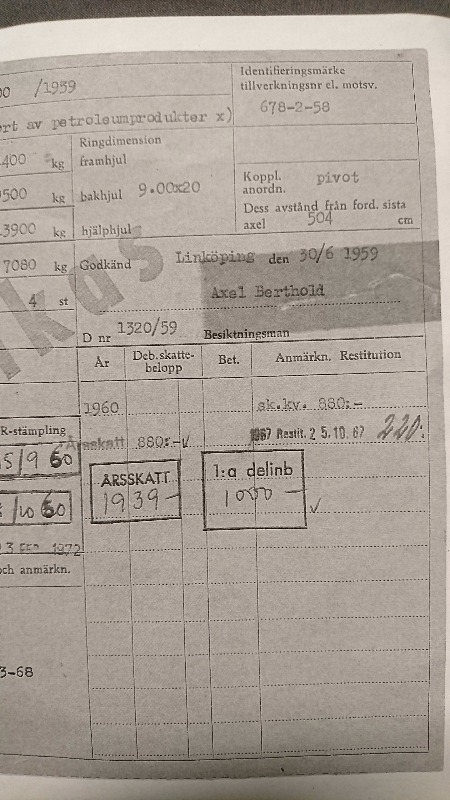 00 /1959
Identifieringsmärke
tillverkningsnr el. motsv.
678-2-58
ort av petroleumprodukter x)
Ringdimension
400 kg framhjul
500 kg bakhjul 9.00x20
Koppl. anordn. pivot
Dess avstånd från ford. sista
axel 504 cm
3900 kg hjälphjul
7080 kg Godkänd Linköping den 30/6 1959
Axel Berthold
4 st
D nr 1320/59 Besiktningsman
År Deb.skatte-belopp Bet. Anmärkn. Restitution
1960 sk.kv. 880:-
R-stämpling
Årsskatt 880:- 1967 Restit. 2 5.10.67 220:
15/9 60
ÅRSSKATT
1939-
1:a delinb
1000-
/10 60
3 FEB 1972
och anmärkn.
3-68